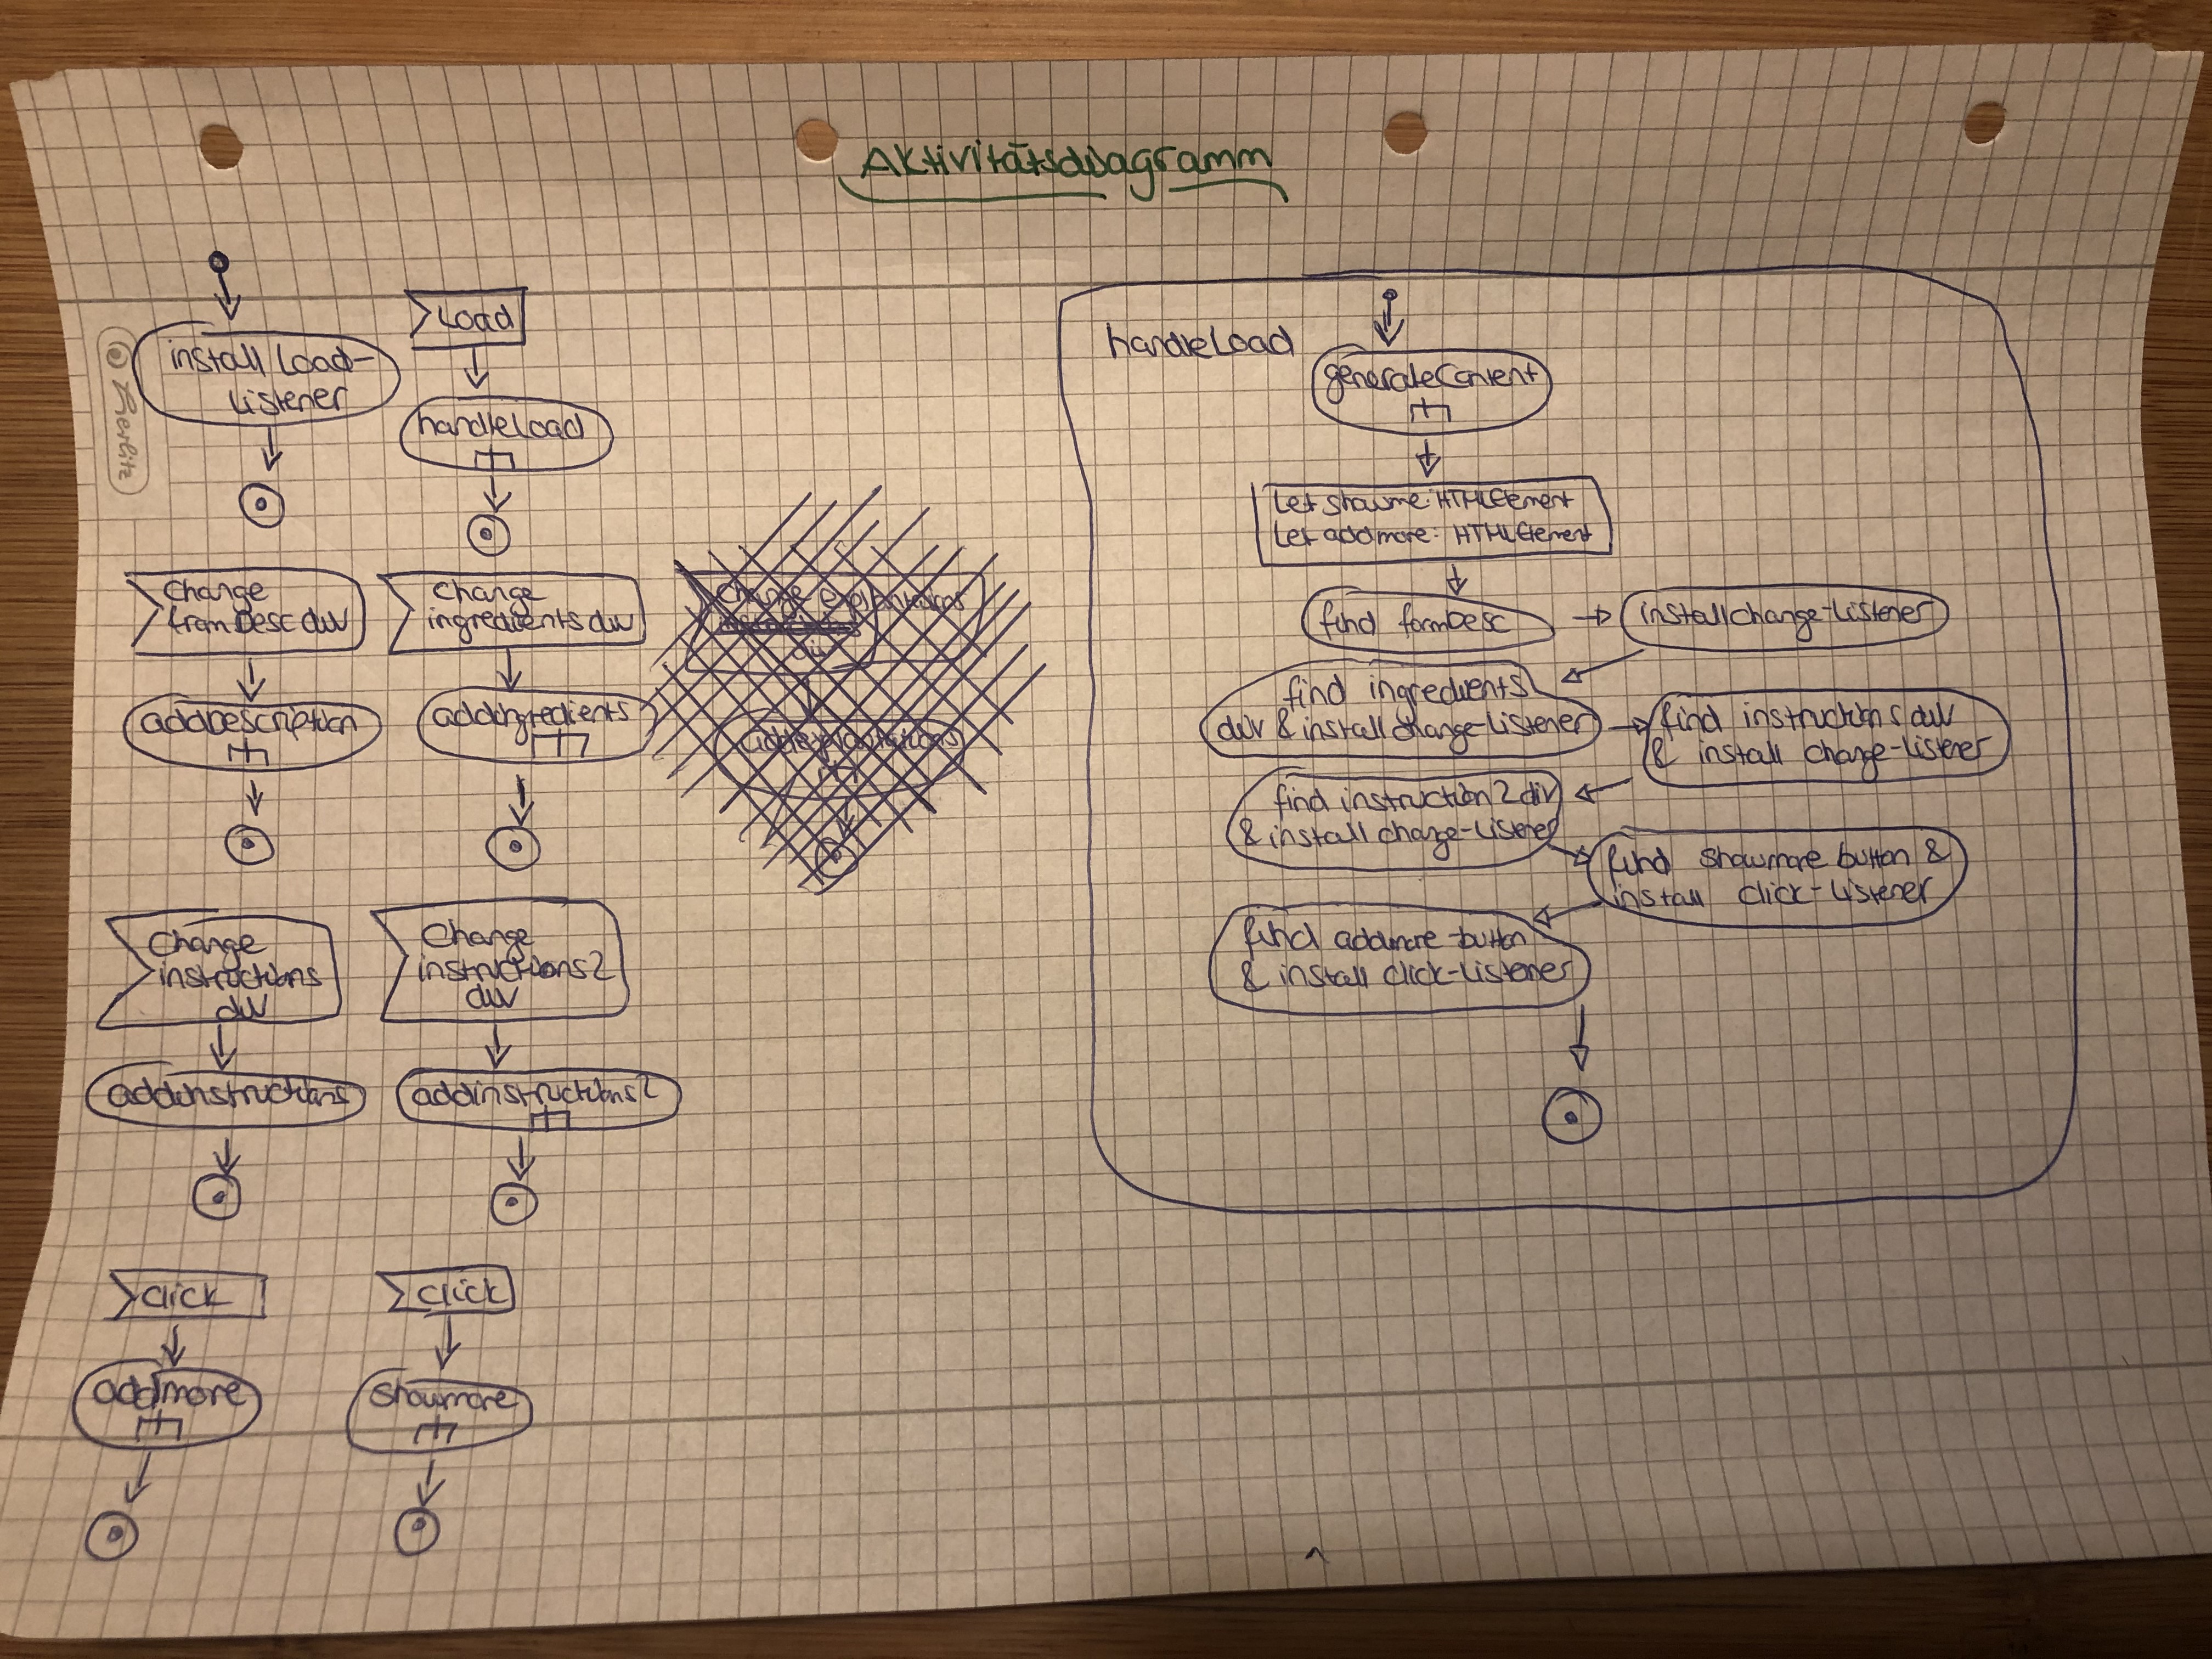 Aktivitätsdiagramm
Herlitz
install load-
listener
Load
handleLoad
Change
formDesc div
addDescription
Change
ingredients div
addIngredients
Change
instructions
div
addInstructions
Change
instructions2
div
addInstructions2
click
addmore
click
Showmore
handleLoad
generateContent
let showme: HTMLElement
let addmore: HTMLElement
find formDesc
install change-listener
find ingredients
div & install change-listener
find instructions div
& install change-listener
find instruction2 div
& install change-listener
find showmore button &
install click-listener
find addmore-button
& install click-listener